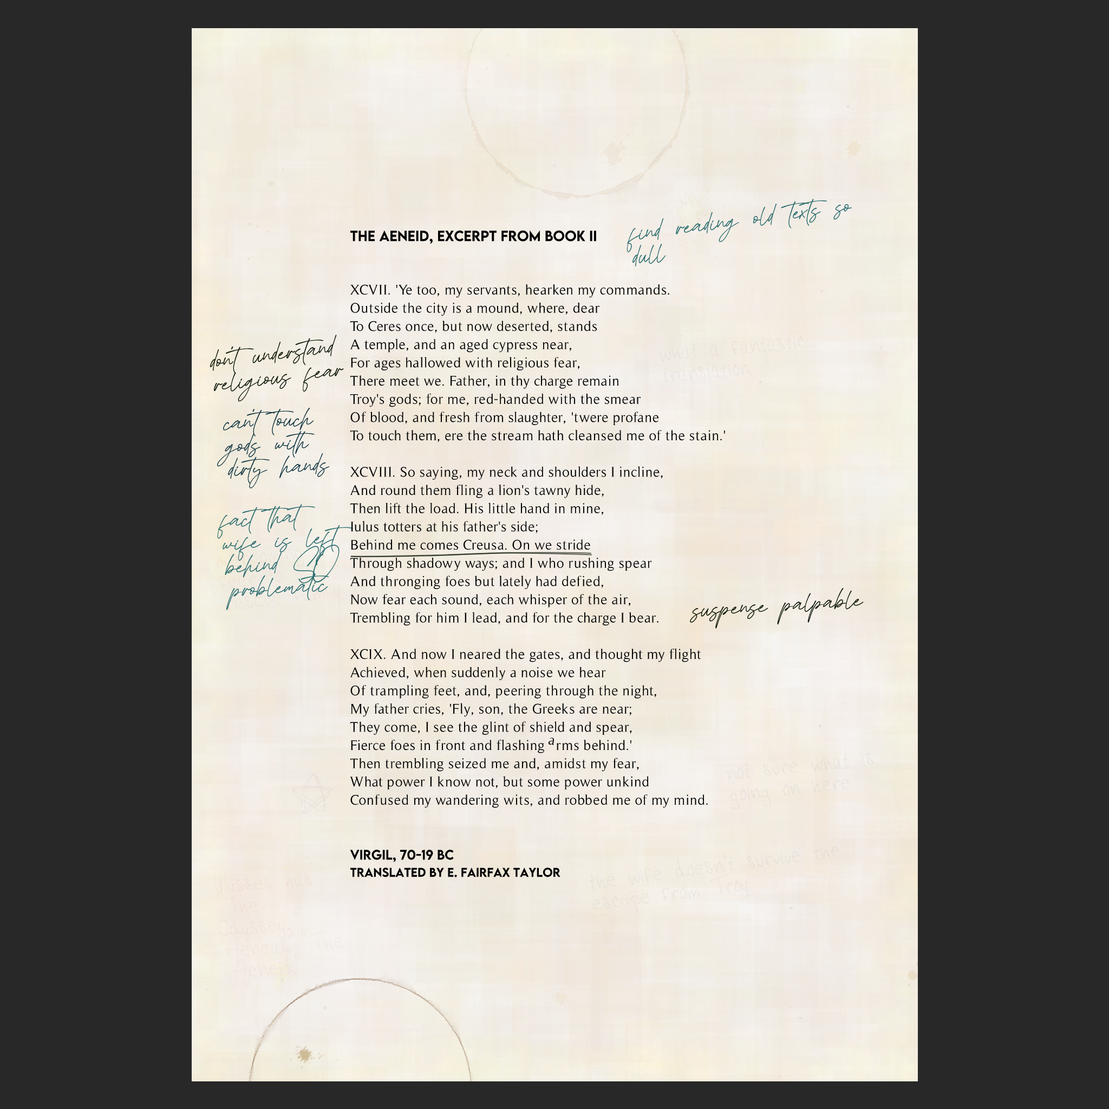 find reading old texts so
dull
THE AENEID, EXCERPT FROM BOOK II
XCVII. 'Ye too, my servants, hearken my commands.
Outside the city is a mound, where, dear
To Ceres once, but now deserted, stands
A temple, and an aged cypress near,
For ages hallowed with religious fear,
There meet we. Father, in thy charge remain
Troy's gods; for me, red-handed with the smear
Of blood, and fresh from slaughter, 'twere profane
To touch them, ere the stream hath cleansed me of the stain.'
don't understand
religious fear
can't touch
gods with
dirty hands
a fantastic
XCVIII. So saying, my neck and shoulders I incline,
And round them fling a lion's tawny hide,
Then lift the load. His little hand in mine,
Iulus totters at his father's side;
Behind me comes Creusa. On we stride
Through shadowy ways; and I who rushing spear
And thronging foes but lately had defied,
Now fear each sound, each whisper of the air,
Trembling for him I lead, and for the charge I bear.
fact that
wife is left
behind SO
problematic
suspense palpable
XCIX. And now I neared the gates, and thought my flight
Achieved, when suddenly a noise we hear
Of trampling feet, and, peering through the night,
My father cries, 'Fly, son, the Greeks are near;
They come, I see the glint of shield and spear,
Fierce foes in front and flashing arms behind.'
Then trembling seized me and, amidst my fear,
What power I know not, but some power unkind
Confused my wandering wits, and robbed me of my mind.
not sure what is
going on here
VIRGIL, 70-19 BC
TRANSLATED BY E. FAIRFAX TAYLOR
the wife doesn't survive the
escape from Troy